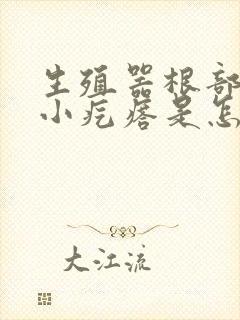 生殖器根部
小疙瘩是怎
大江流